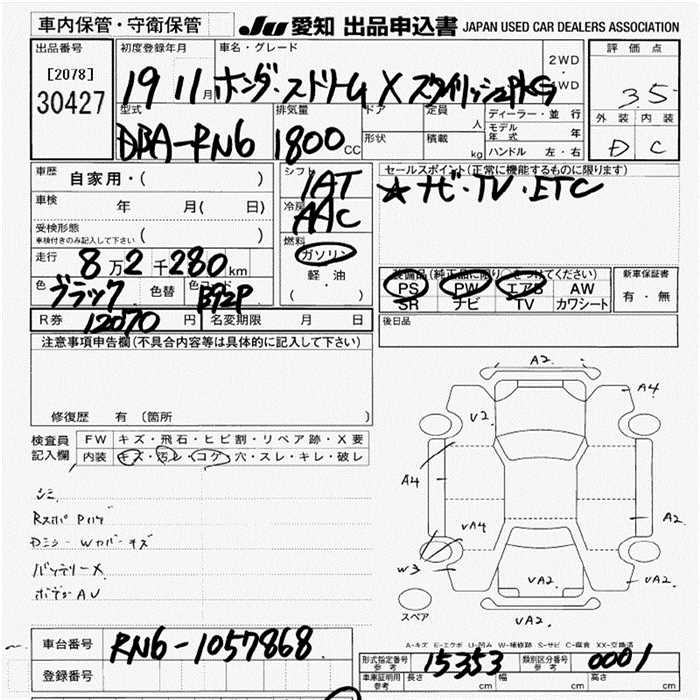 車内保管・守衛保管
JU 愛知 出品申込書 JAPAN USED CAR DEALERS ASSOCIATION
出品番号
[2078]
30427
初度登録年月
19 11月
車名・グレード
ホンダ・ストリーム X スタイリッシュPKG
2WD
・
4WD
評価点
3.5
外装 内装
D C
型式
DBA-RN6
排気量
1800 CC
ドア
形状
定員 人
積載 kg
ディーラー・並行
モデル年式 年
ハンドル 左・右
車歴 自家用・( )
車検 年 月( 日)
受検形態
車検付きのみ記入して下さい ( )
走行 8万2千280km
色 ブラック 色替 色コード B92P
R券 12070 円 名変期限 月 日
シフト
IAT
冷房
AAC
燃料
ガソリン
軽・油
( )
セールスポイント(正常に機能するものに限ります)
☆ナビ・TV・ETC
装備品(純正品に限り○をつけてください)
PS PW エアB AW
SR ナビ TV カワシート
新車保証書
有・無
後日品
注意事項申告欄(不具合内容等は具体的に記入して下さい)
修復歴 有 (箇所 )
検査員記入欄
FW キズ・飛石・ヒビ割・リペア跡・X要
内装 キズ・汚レ・コゲ・穴・スレ・キレ・破レ
シミ
バッテリーX
A2
A4
V2
A4
A2
VA4
W3
VA2
VA2
VA2
スペア
A-キズ E-エクボ U-凹み W-補修跡 S-サビ C-腐食 XX-交換済
車台番号 RN6-1057868
登録番号
形式指定番号
参考
15353
類別区分番号
参考
0001
車庫証明用
参考
長さ cm 幅 cm 高さ cm